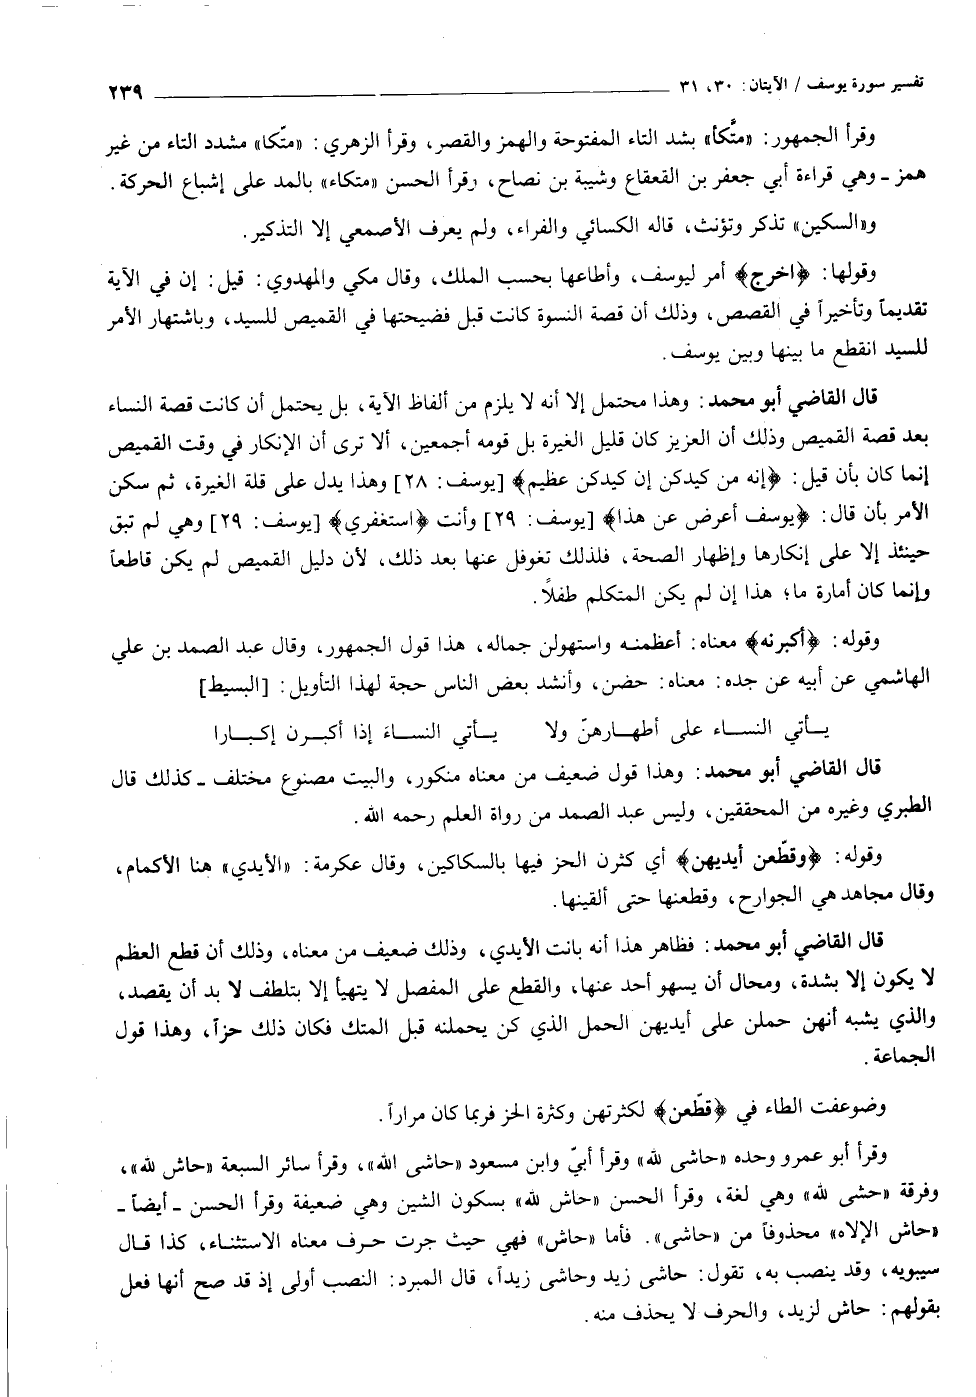 تفسير سورة يوسف / الآيتان: ٣٠، ٣١ ٢٣٩
وقرأ الجمهور: «متَّكأ» بشد التاء المفتوحة والهمز والقصر، وقرأ الزهري: «متّكا» مشدد التاء من غير
همز ـ وهي قراءة أبي جعفر بن القعقاع وشيبة بن نصاح، وقرأ الحسن «متكاء» بالمد على إشباع الحركة.
و«السكين» تذكر وتؤنث، قاله الكسائي والفراء، ولم يعرف الأصمعي إلا التذكير.
وقولها: ﴿اخرج﴾ أمر ليوسف، وأطاعها بحسب الملك، وقال مكي والمهدوي: قيل: إن في الآية
تقديماً وتأخيراً في القصص، وذلك أن قصة النسوة كانت قبل فضيحتها في القميص للسيد، وباشتهار الأمر
للسيد انقطع ما بينها وبين يوسف.
قال القاضي أبو محمد: وهذا محتمل إلا أنه لا يلزم من ألفاظ الآية، بل يحتمل أن كانت قصة النساء
بعد قصة القميص وذلك أن العزيز كان قليل الغيرة بل قومه أجمعين، ألا ترى أن الإنكار في وقت القميص
إنما كان بأن قيل: ﴿إنه من كيدكن إن كيدكن عظيم﴾ [يوسف: ٢٨] وهذا يدل على قلة الغيرة، ثم سكن
الأمر بأن قال: ﴿يوسف أعرض عن هذا﴾ [يوسف: ٢٩] وأنت ﴿استغفري﴾ [يوسف: ٢٩] وهي لم تبق
حينئذ إلا على إنكارها وإظهار الصحة، فلذلك تغوفل عنها بعد ذلك، لأن دليل القميص لم يكن قاطعاً
وإنما كان أمارة ما؛ هذا إن لم يكن المتكلم طفلاً.
وقوله: ﴿أكبرنه﴾ معناه: أعظمنه واستهولن جماله، هذا قول الجمهور، وقال عبد الصمد بن علي
الهاشمي عن أبيه عن جده: معناه: حضن، وأنشد بعض الناس حجة لهذا التأويل: [البسيط]
يـأتي النسـاء على أطهـارهنّ ولا يـأتي النسـاءَ إذا أكبـرن إكبـارا
قال القاضي أبو محمد: وهذا قول ضعيف من معناه منكور، والبيت مصنوع مختلف ـ كذلك قال
الطبري وغيره من المحققين، وليس عبد الصمد من رواة العلم رحمه الله.
وقوله: ﴿وقطّعن أيديهن﴾ أي كثرن الحز فيها بالسكاكين، وقال عكرمة: «الأيدي» هنا الأكمام،
وقال مجاهد هي الجوارح، وقطعنها حتى ألقينها.
قال القاضي أبو محمد: فظاهر هذا أنه بانت الأيدي، وذلك ضعيف من معناه، وذلك أن قطع العظم
لا يكون إلا بشدة، ومحال أن يسهو أحد عنها، والقطع على المفصل لا يتهيأ إلا بتلطف لا بد أن يقصد،
والذي يشبه أنهن حملن على أيديهن الحمل الذي كن يحملنه قبل المتك فكان ذلك حزاً، وهذا قول
الجماعة.
وضوعفت الطاء في ﴿قطّعن﴾ لكثرتهن وكثرة الحز فربما كان مراراً.
وقرأ أبو عمرو وحده «حاشى لله» وقرأ أبيّ وابن مسعود «حاشى الله»، وقرأ سائر السبعة «حاش لله»،
وفرقة «حشى لله» وهي لغة، وقرأ الحسن «حاش لله» بسكون الشين وهي ضعيفة وقرأ الحسن ـ أيضاً ـ
«حاش الإلاه» محذوفاً من «حاشى». فأما «حاش» فهي حيث جرت حـرف معناه الاستثنـاء، كذا قـال
سيبويه، وقد ينصب به، تقول: حاشى زيد وحاشى زيداً، قال المبرد: النصب أولى إذ قد صح أنها فعل
بقولهم: حاش لزيد، والحرف لا يحذف منه.